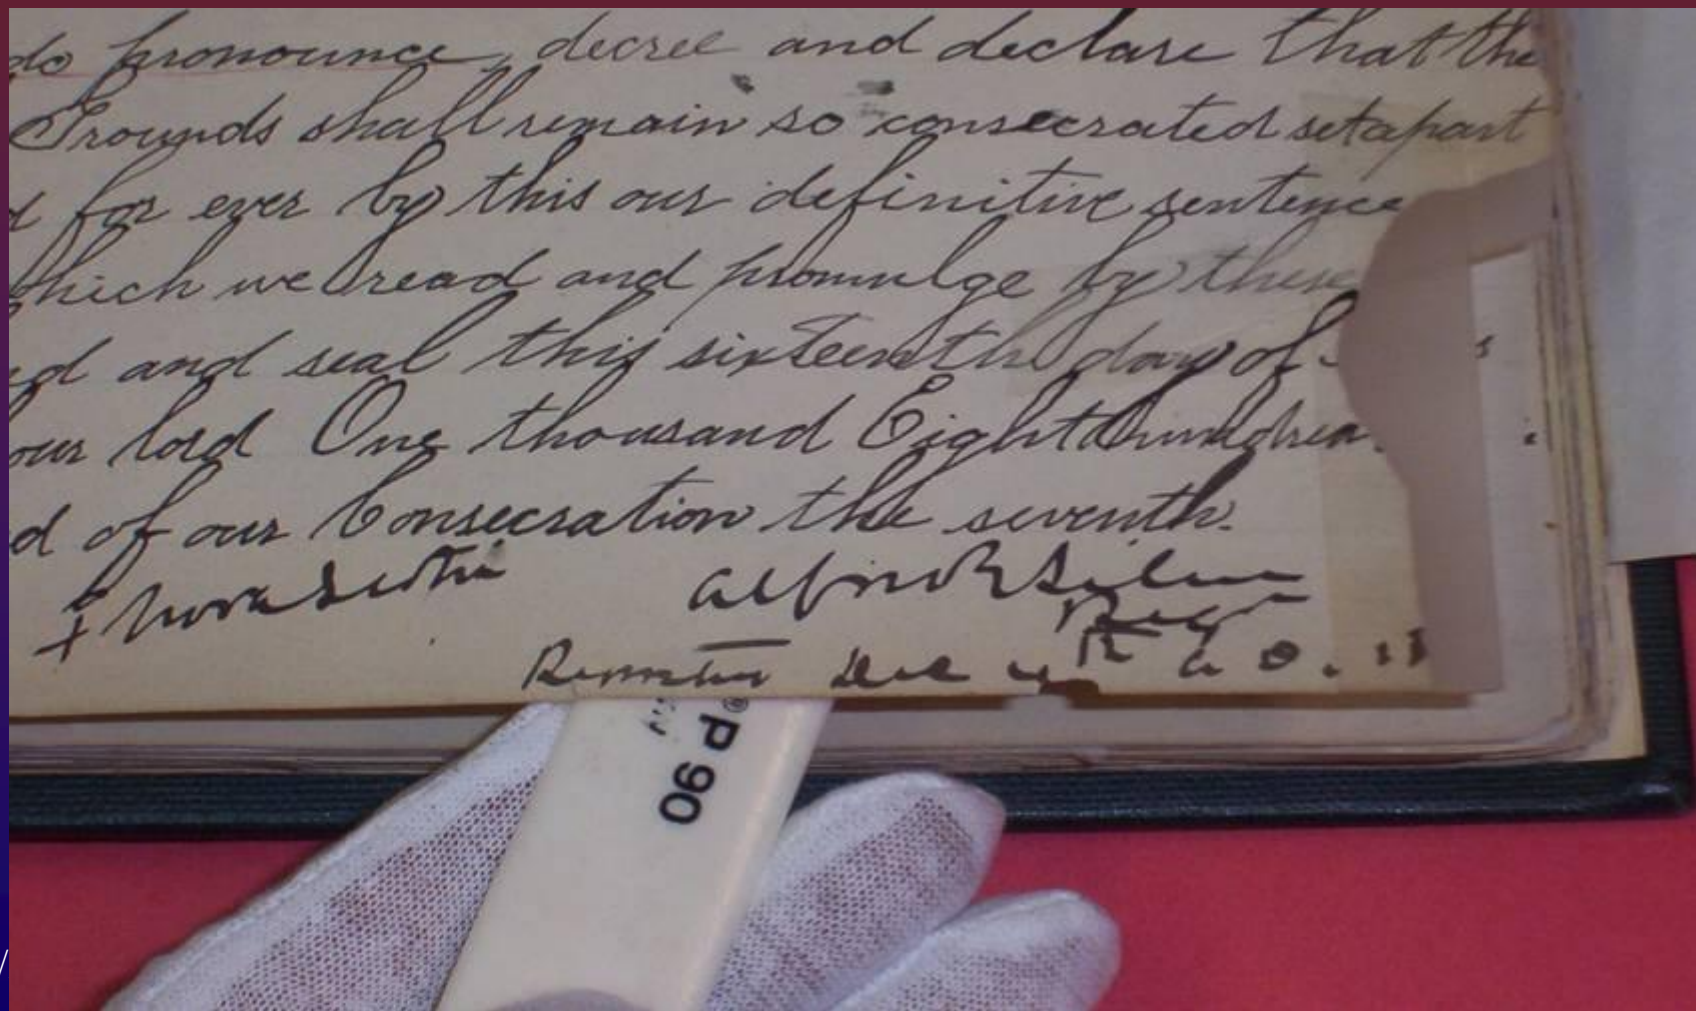 do pronounce, decree and declare that the
Grounds shall remain so consecrated set apart
d for ever by this our definitive sentence
which we read and promulge by these
nd and seal this sixteenth day of
our lord One thousand Eight hundred
d of our Consecration the seventh.
+ Nova Scotia
Dec A D. 18
P 90